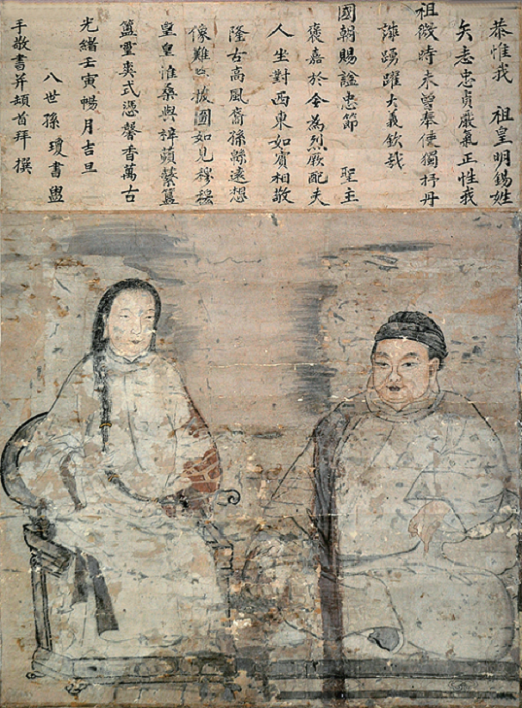 恭惟我 祖皇明錫姓
矢志忠貞嚴氣正性我
祖微時未曾奉使獨抒丹
誠踴躍大義欽哉
國朝賜諡忠節 聖主
褒嘉於今為烈厥配夫
人坐對西東如賓相敬
隆古高風裔孫緜遠想
像難 披圖如見穆穆
皇皇惟桑與梓蘋蘩
靈爽式憑馨香萬古
光緒壬寅暢月吉旦
八世孫瓊書盥
手敬書并頓首拜撰